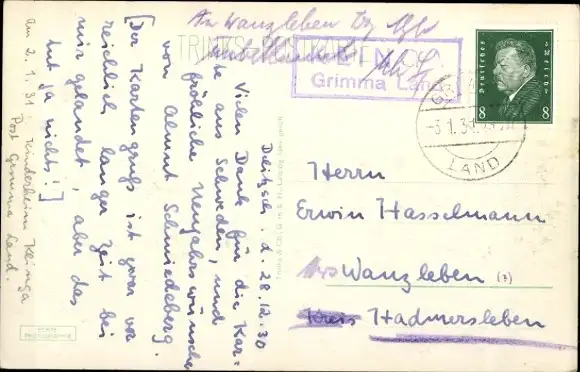 An Wanzleben Bz
TRINKS-POSTKARTE
KLEINGA
Grimma Land
Deutsches Reich
8 8
-3.1.31
LAND
Delitzsch. d. 28.12.30
Vielen Dank für die Kar=
te aus Schweden, und
fröhliche Neujahrswünsche
von Almut Schmiedeberg.
[Der Kartengruß ist zwar vor
reichlich langer Zeit bei
mir gelandet, aber das
tut ja nichts!]
am 2.1.31. Kinderheim Kleinga
Post Grimma Land.
Herrn
Erwin Hasselmann
Wanzleben (?)
Kreis Hadmersleben
ECHTE
PHOTOGRAPHIE